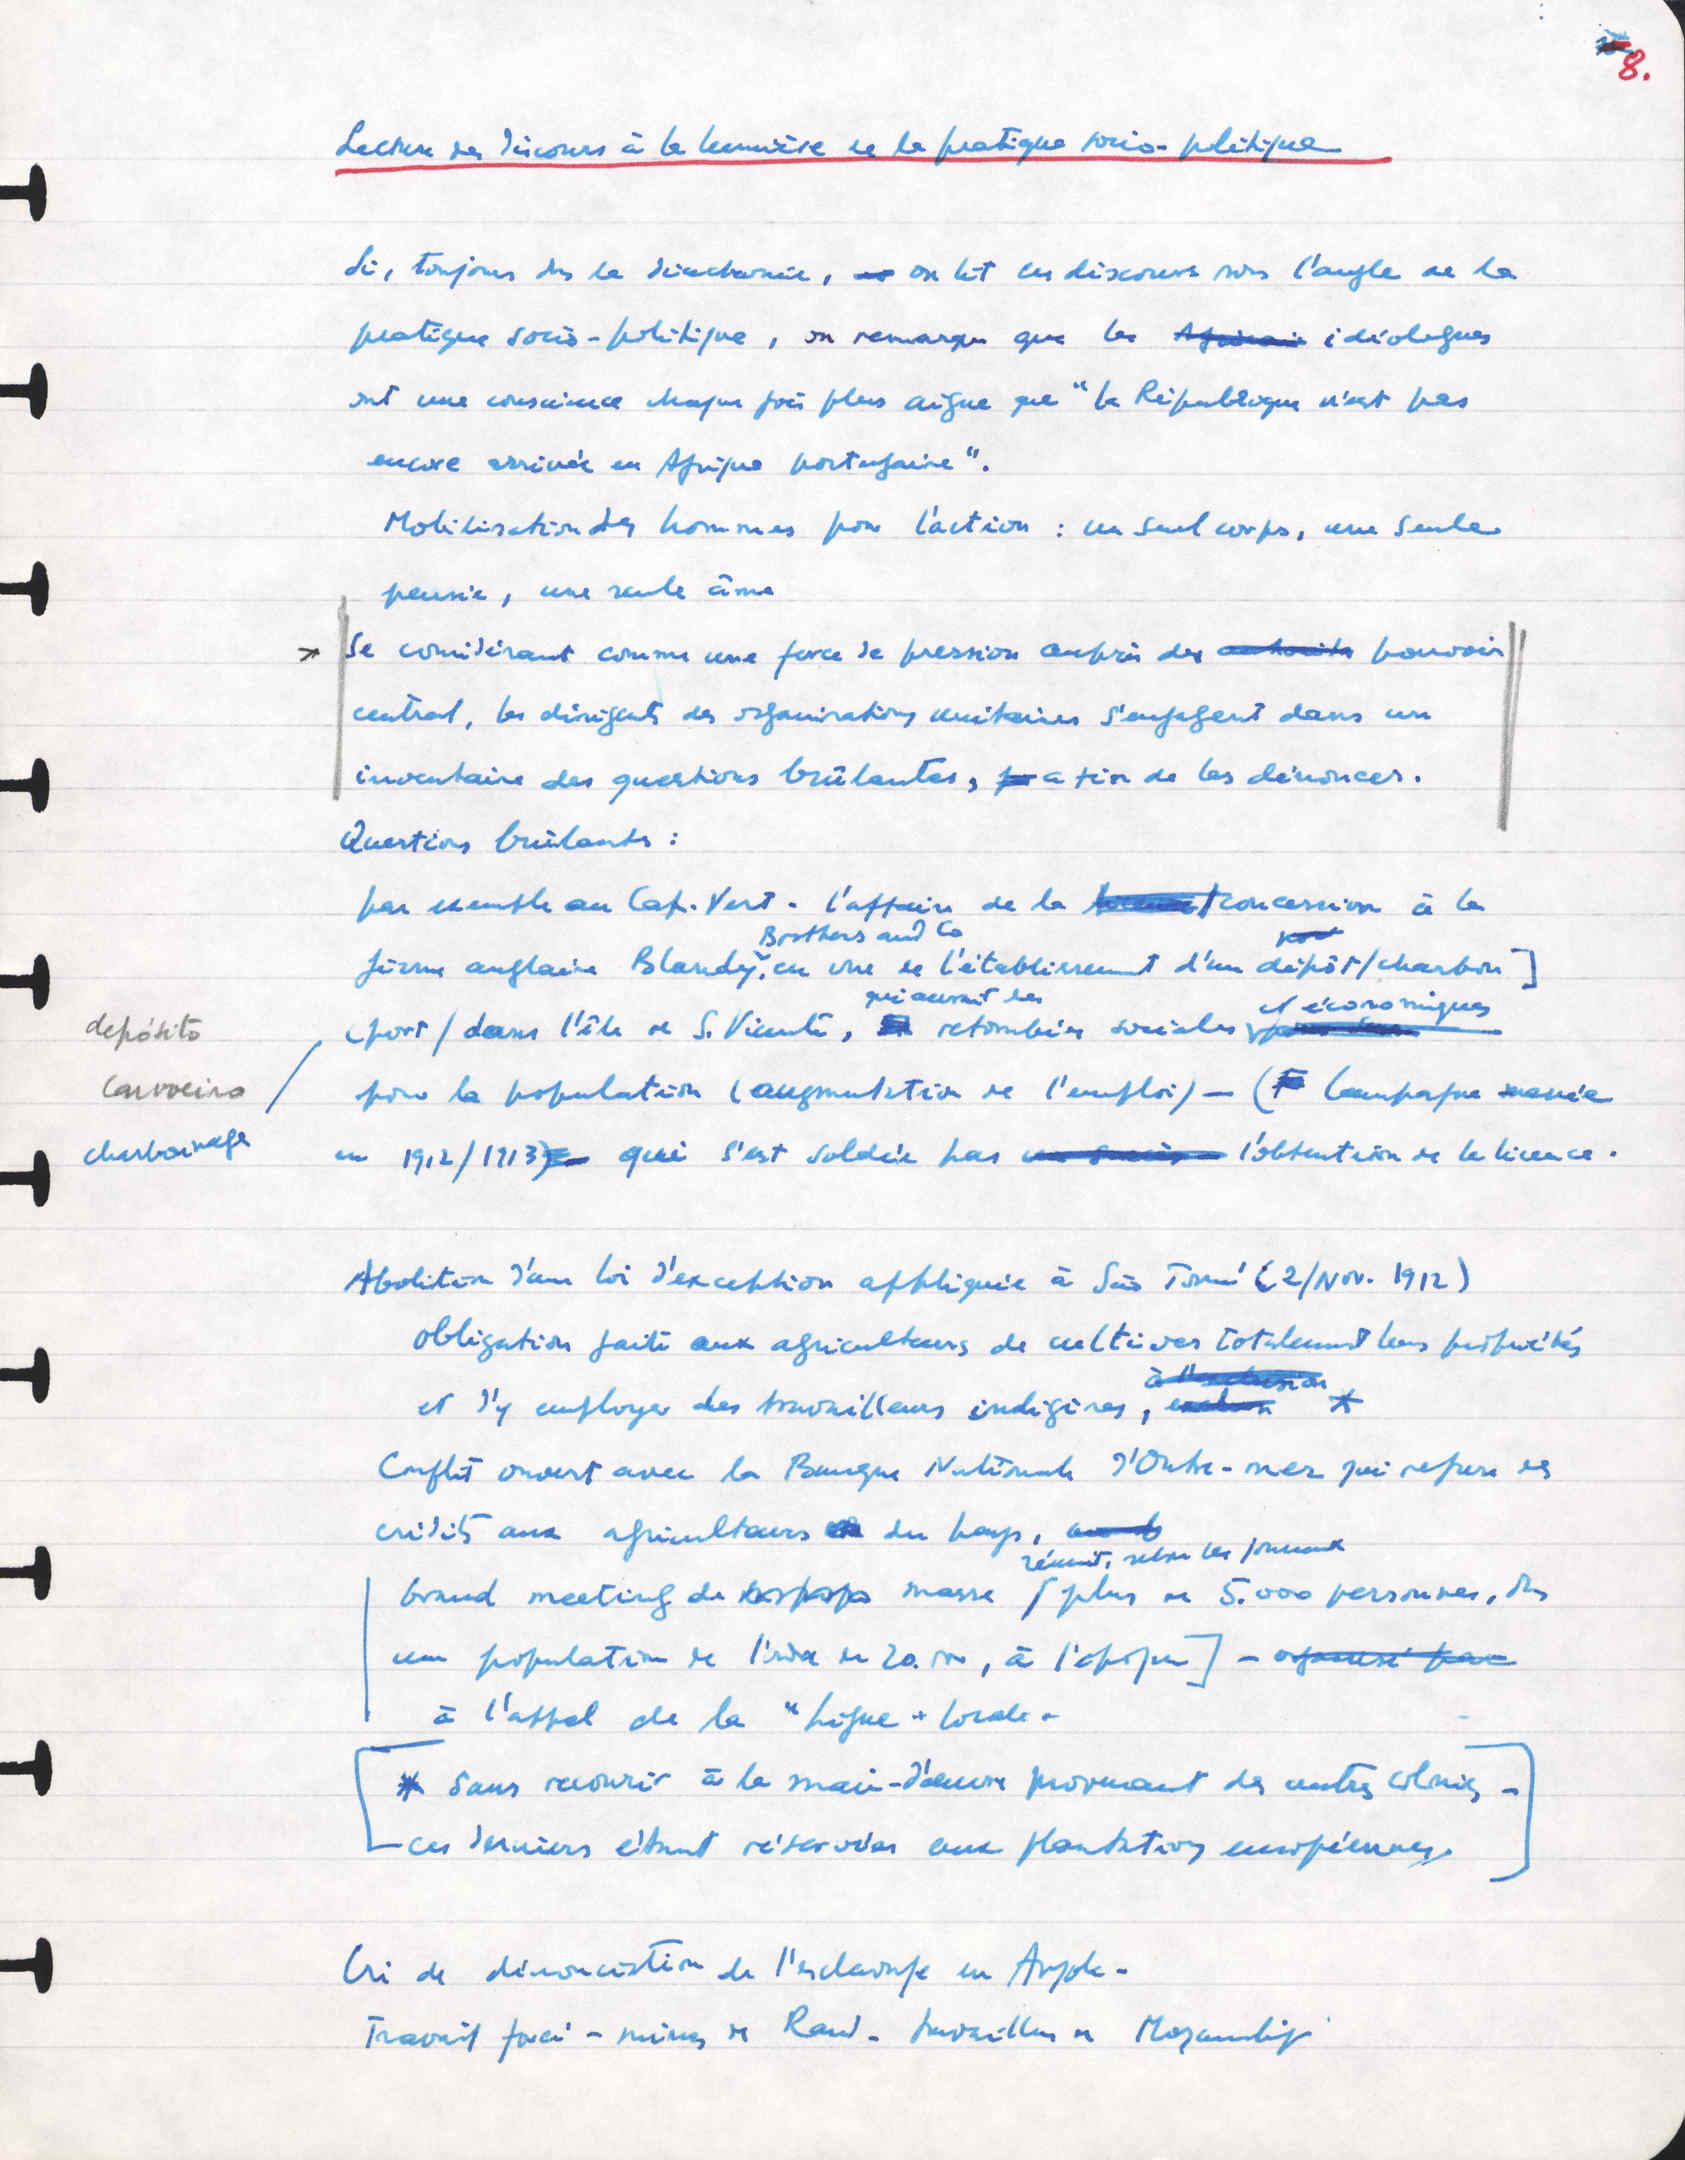 8.
Lecture des discours à la lumière de la pratique socio-politique
Si, toujours ds la diachronie, on lit ces discours sous l'angle de la
pratique socio-politique, on remarque que les idéologues
ont une conscience chaque fois plus aigue que "la République n'est pas
encore arrivée en Afrique portugaise".
Mobilisation des hommes pour l'action : un seul corps, une seule
pensée, une seule âme
Se considérant comme une force de pression auprès des autorités pouvoir
central, les dirigents des organisations unitaires s'engagent dans un
inventaire des questions brûlantes, afin de les dénoncer.
Questions brûlantes :
par exemple au Cap-Vert - l'affaire de la concession à la
Brothers and Co
firme anglaise Blandy, en vue de l'établissement d'un dépôt/charbon]
qui aurait des
et économiques
(port/dans l'île de S. Vicente, retombées sociales
depósito
carvoeiro
charbonnage
pour la population (augmentation de l'emploi) - (Campagne menée
en 1912/1913) qui s'est soldée par l'obtention de la licence.
Abolition d'une loi d'exception appliquée à São Tomé (2/Nov. 1912)
obligation faite aux agriculteurs de cultiver totalement leurs propriétés
à l'exclusion
et d'y employer des travailleurs indigènes, *
Conflit ouvert avec la Banque Nationale d'Outre-mer qui refuse des
crédits aux agriculteurs du pays,
réunit, selon les journaux
Grand meeting de masse [plus de 5.000 personnes, ds
une population de l'ordre de 20.000, à l'époque] - organisé par
à l'appel de la "Ligue" locale -
* Sans recourir à la main-d'œuvre provenant des autres colonies -
ces derniers étant réservées aux plantations européennes.
Cri de dénonciation de l'esclavage en Angola -
Travail forcé - mines de Rand - travailleurs de Mozambique